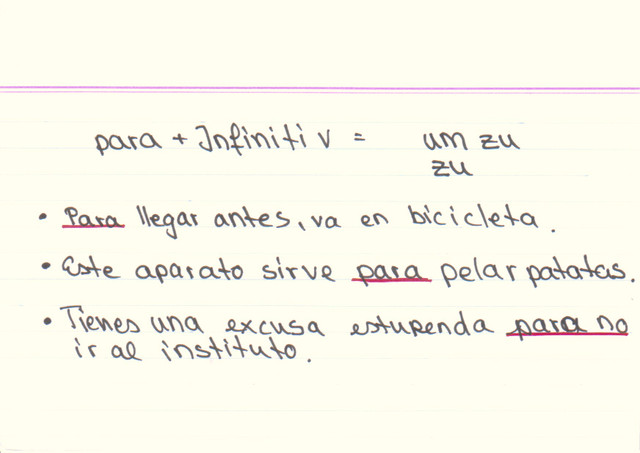 para + Infinitiv = um zu
zu
• Para llegar antes, va en bicicleta.
• Este aparato sirve para pelar patatas.
• Tienes una excusa estupenda para no
ir al instituto.